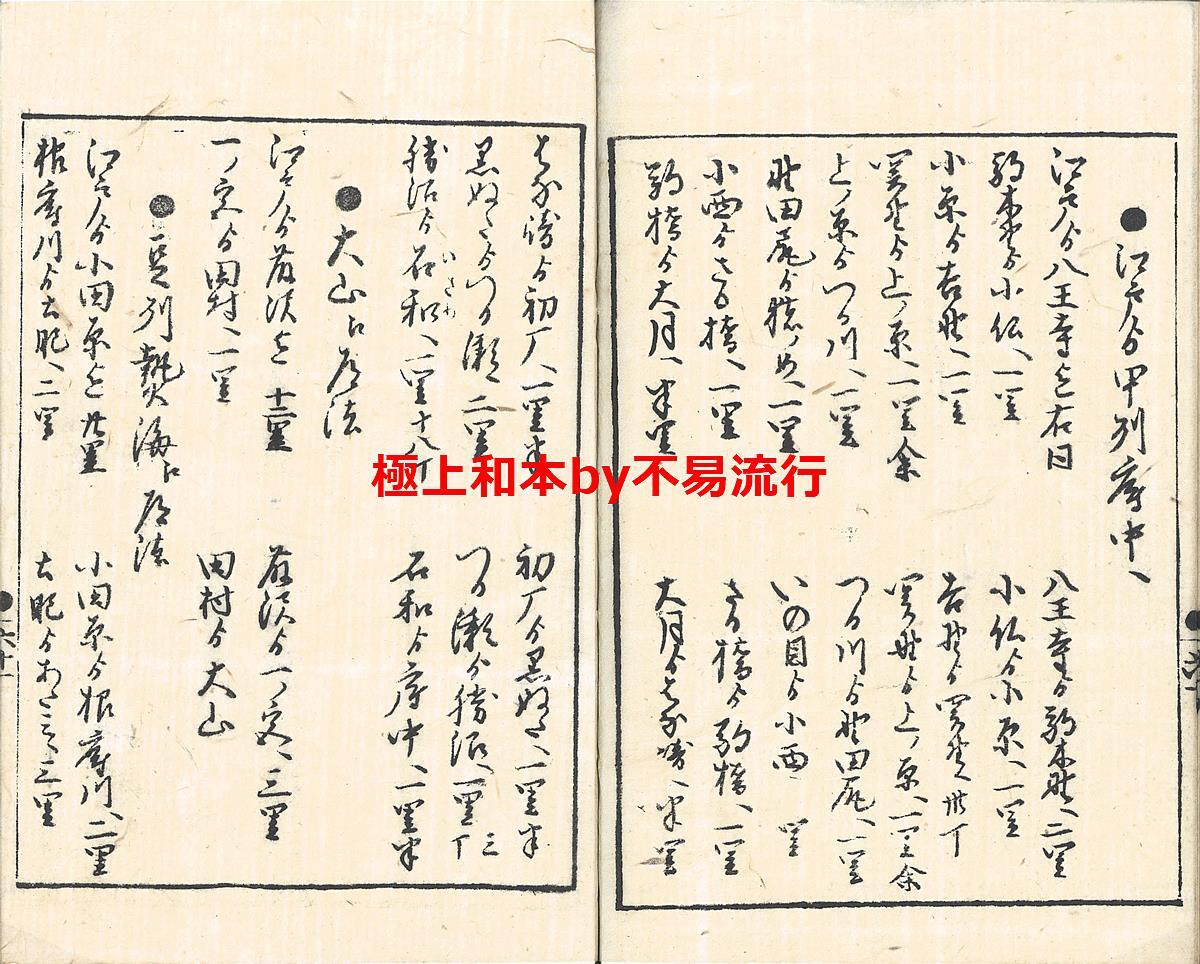 ●江戸ゟ甲州府中へ
江戸ゟ八王寺迄 右日
八王寺ゟ駒木野へ 二里
駒木野ゟ小仏へ 一里
小仏ゟ小原へ 一里
小原ゟ吉野へ 一里
吉野ゟ関野へ 卅丁
関野ゟ上ノ原へ 一里余
関野ゟ上ノ原へ 一里余
上ノ原ゟつる川へ 一里
つる川ゟ野田尻へ 一里
野田尻ゟ 一里
いの目ゟ小西 里
小西ゟさる橋へ 一里
さる橋ゟ駒橋へ 一里
駒橋ゟ大月へ 半里
大月ゟはな咲へ 半里
はな咲ゟ初丁へ 一里半
初丁ゟ黒ぬたへ 一里半
黒ぬたゟつる瀬へ 二里
つる瀬ゟ勝沼へ 一里三丁
勝沼ゟ石和へ 一里十八丁
いさわ
石和ゟ府中へ 一里半
●大山口道法
江戸ゟ藤沢迄 十二里
藤沢ゟ一ノ宮へ 三里
一ノ宮ゟ田村へ 一里
田村ゟ大山
●豆州熱海口道法
江戸ゟ小田原迄 廿里
小田原ゟ根府川へ 二里
根府川ゟ 二里
ゟあたミへ 三里
六十
六十一
極上和本by不易流行